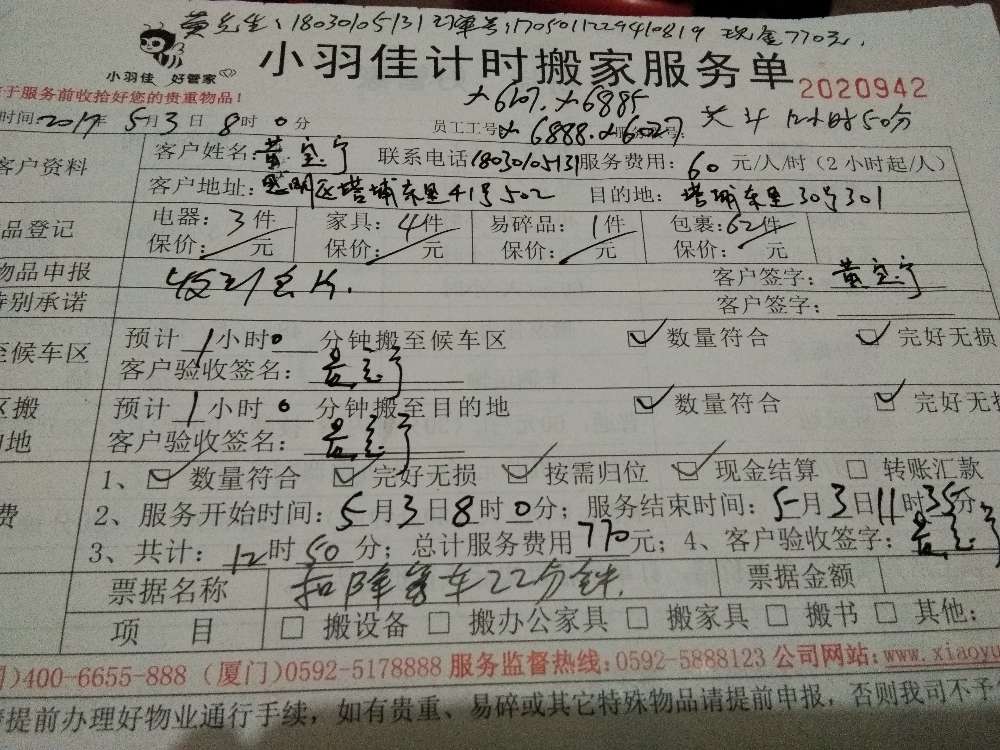 黄先生:18030105131 订单号:1705011229410819 现金770元.
小羽佳 好管家
小羽佳计时搬家服务单
2020942
于服务前收拾好您的贵重物品!
大6107.大6885
时间:2017年5月3日8时0分 员工工号:大6888.大6027 共4人 12小时50分
客户资料 客户姓名:黄宝宁 联系电话18030105131服务费用:60元/人/时(2小时起/人)
客户地址:思明区塔埔东里41号502 目的地:塔埔东里30号301
品登记 电器:3件 家具:4件 易碎品:1件 包裹:62件
保价: 元 保价: 元 保价: 元 保价: 元
物品申报 收到名片. 客户签字:黄宝宁
特别承诺 客户签字:
至候车区 预计1小时0分钟搬至候车区 数量符合 完好无损
客户验收签名:
区搬 预计1小时0分钟搬至目的地 数量符合 完好无损
的地 客户验收签名:
1、数量符合 完好无损 按需归位 现金结算 转账汇款
费 2、服务开始时间:5月3日8时0分;服务结束时间:5月3日11时35分
3、共计:12时50分;总计服务费用770元;4、客户验收签字:
票据名称 扣除等车22分钟. 票据金额
项 目 搬设备 搬办公家具 搬家具 搬书 其他:
)400-6655-888 (厦门)0592-5178888 服务监督热线:0592-5888123 公司网站:www.xiaoyu
提前办理好物业通行手续,如有贵重、易碎或其它特殊物品请提前申报,否则我司不予